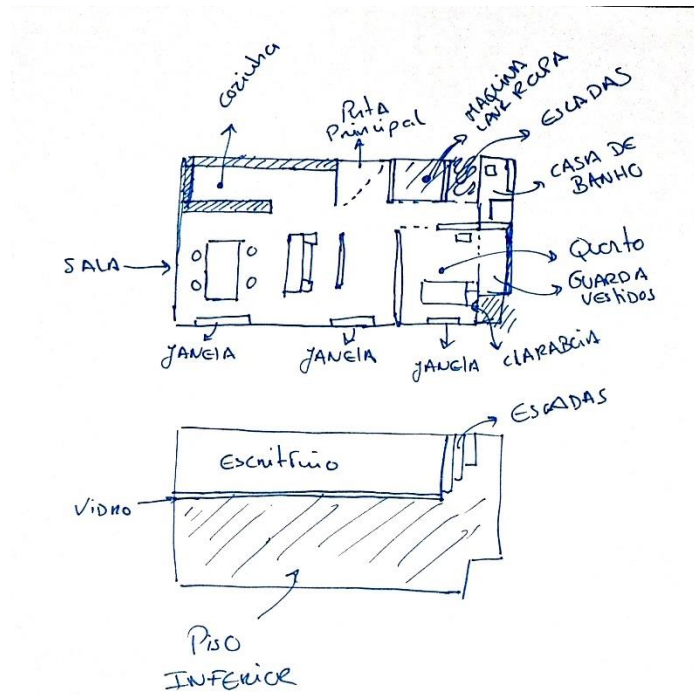 cozinha
Porta
Principal
MAQUINA
LAVAR ROUPA
ESCADAS
CASA DE
BANHO
SALA
Quarto
GUARDA
VESTIDOS
JANELA
JANELA
JANELA
CLARABOIA
ESCADAS
Escritório
VIDRO
PISO
INFERIOR